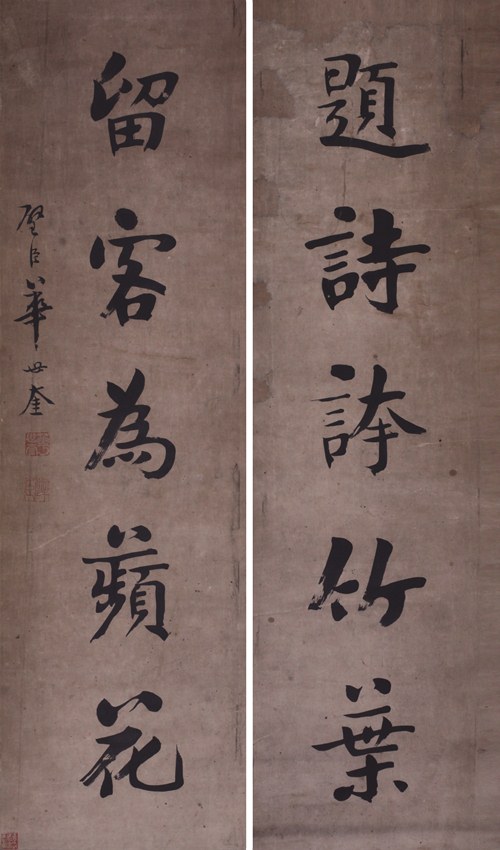 題詩誇竹葉
留客為蘋花
璧臣華世奎